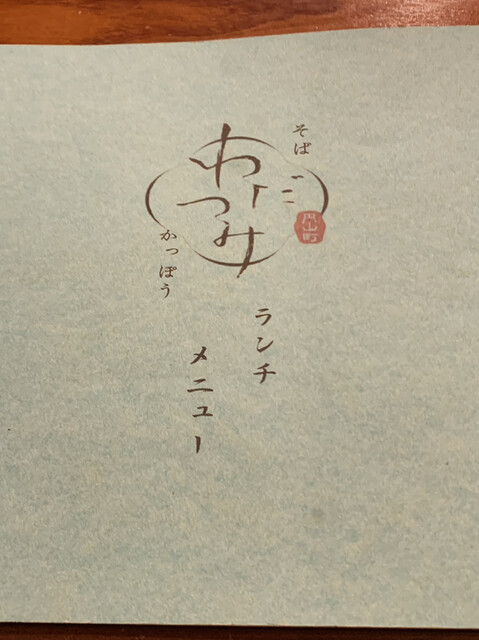 そば
わだつみ
円山町
かっぽう
ランチ
メニュー